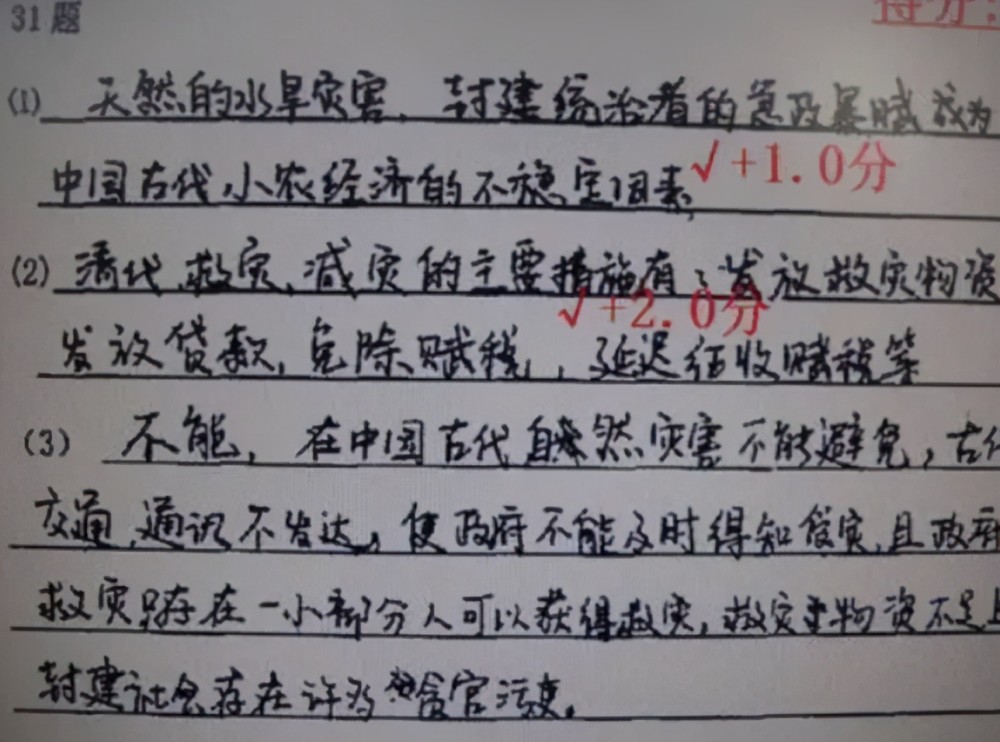 31题
得分:
(1) 天然的水旱灾害、封建统治者的急政暴赋成为
中国古代小农经济的不稳定因素,
√+1.0分
(2) 清代救灾、减灾的主要措施有:发放救灾物资
√+2.0分
发放贷款,免除赋税,延迟征收赋税等
(3) 不能,在中国古代自然灾害不能避免,古代
交通、通讯不发达,使政府不能及时得知受灾,且政府
救灾只存在一小部分人可以获得救灾,救灾物资不足且
封建社会存在许多贪官污吏。